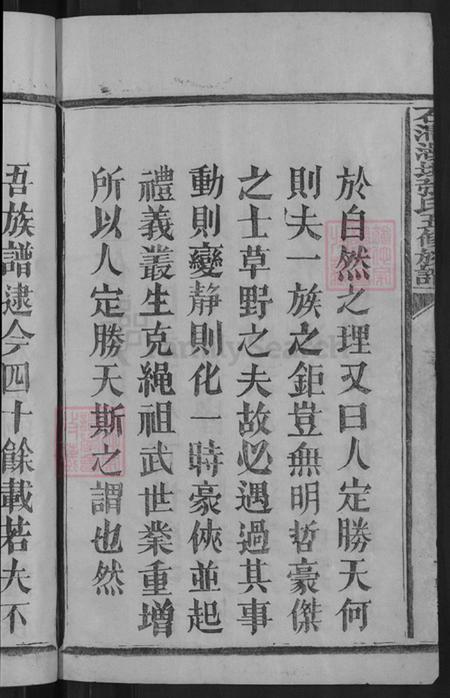 於自然之理又曰人定勝天何
則夫一族之鉅豈無明哲豪傑
之士草野之夫故必遇過其事
動則變靜則化一時豪俠並起
禮義叢生克繩祖武世業重增
所以人定勝天斯之謂也然
吾族譜逮今四十餘載若夫不